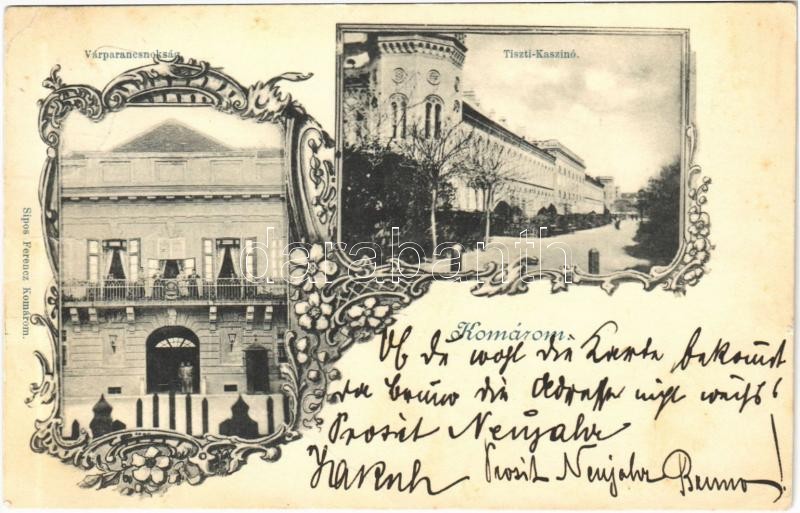 Várparancsnokság
Tiszti-Kaszinó.
Sipos Ferencz Komárom.
darabanth
Komárom.
Ob du wohl die Karte bekomst
da bruno die Adresse nicht weiß!
Prosit Neujahr
Prosit Neujahr Bruno!